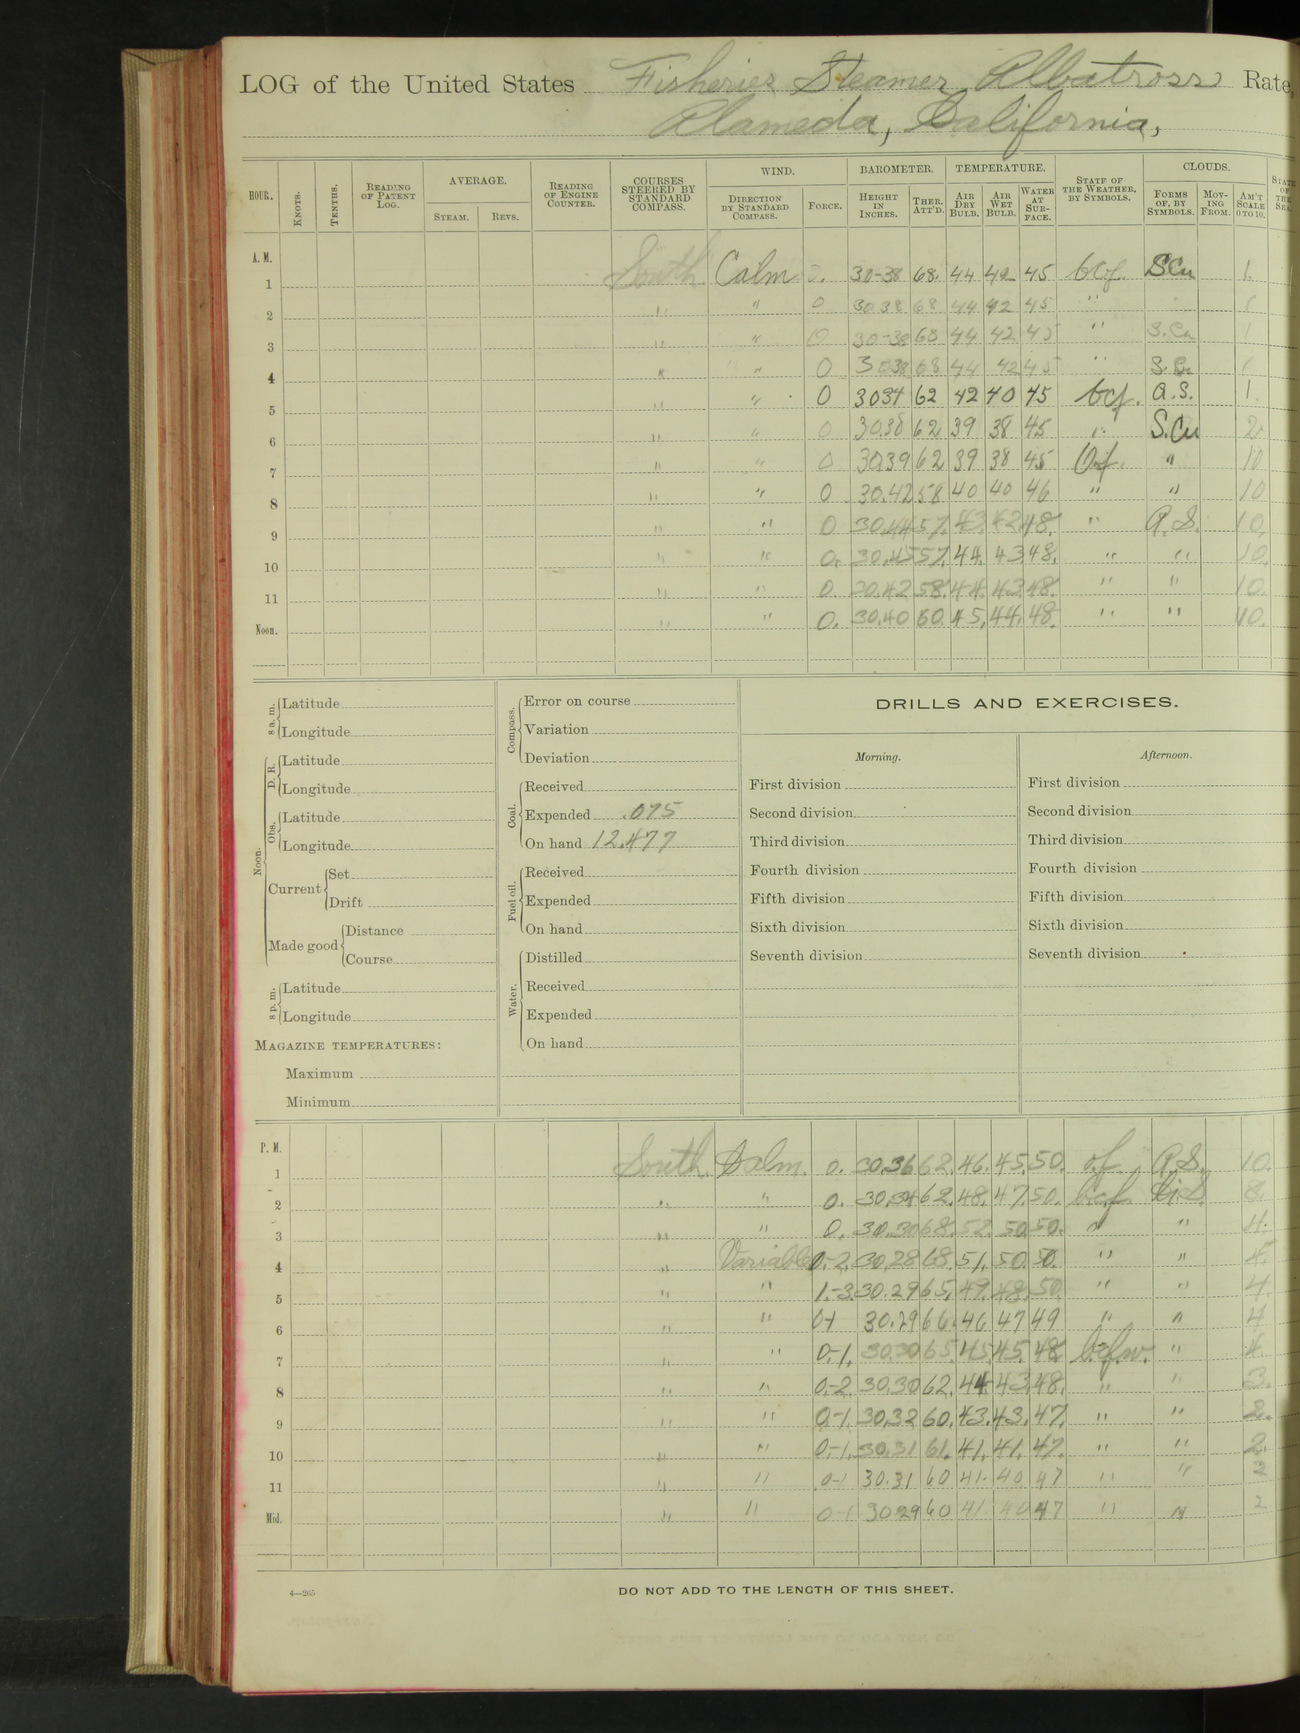 LOG of the United States Fisheries Steamer, Albatross Rate,
Alameda, California,
HOUR. KNOTS. TENTHS. READING OF PATENT LOG. AVERAGE. STEAM. REVS. READING OF ENGINE COUNTER. COURSES STEERED BY STANDARD COMPASS. WIND. DIRECTION BY STANDARD COMPASS. FORCE. BAROMETER. HEIGHT IN INCHES. THER. ATT'D. TEMPERATURE. AIR DRY BULB. AIR WET BULB. WATER AT SURFACE. STATE OF THE WEATHER, BY SYMBOLS. CLOUDS. FORMS OF, BY SYMBOLS. MOVING FROM. AM'T SCALE 0 TO 10. STATE OF THE SEA.
A. M.
1 South Calm 0. 30-38 68. 44 42 45 bcf. SCu 1.
2 " " 0 30 38 68 44 42 45 " 1
3 " " 0 30-38 68 44 42 45 " S.Cu 1
4 " " 0 3038 68 44 42 45 " S.Cu 1
5 " " 0 3034 62 42 40 45 bcf. A.S. 1.
6 " " 0 30.38 62 39 38 45 " S.Cu 2
7 " " 0 30.39 62 39 38 45 Of. " 10
8 " " 0 30.42 58 40 40 46 " " 10
9 " " 0 30.44 57. 43. 42 48. " A.S. 10.
10 " " 0. 30.45 57. 44. 43. 48. " " 10.
11 " " 0 30.42 58. 44. 43. 48. " " 10.
Noon. " " 0. 30.40 60. 45. 44. 48. " " 10.
8 a. m. Latitude
Longitude
Noon. D. R. Latitude
Longitude
Obs. Latitude
Longitude
Current Set
Drift
Made good Distance
Course
8 p. m. Latitude
Longitude
MAGAZINE TEMPERATURES:
Maximum
Minimum
Compass. Error on course
Variation
Deviation
Coal. Received
Expended .075
On hand 12.477
Fuel oil. Received
Expended
On hand
Water. Distilled
Received
Expended
On hand
DRILLS AND EXERCISES.
Morning.
First division
Second division
Third division
Fourth division
Fifth division
Sixth division
Seventh division
Afternoon.
First division
Second division
Third division
Fourth division
Fifth division
Sixth division
Seventh division
P. M.
1 South. Calm. 0. 30.36 62. 46. 45. 50. of. A.S. 10.
2 " " 0. 30.34 62. 48. 47. 50. bcf. Ci.S 8.
3 " " 0. 30.30 68. 52. 50. 50. " " 4.
4 " Variable 0-2. 30.28 68. 51. 50. 50. " " 4.
5 " " 1-3. 30.29 65. 49. 48. 50. " " 4.
6 " " 0-1 30.29 66. 46 47 49 " " 4
7 " " 0-1. 30.30 65. 45. 45. 48. bcfw. " 4.
8 " " 0-2. 30.30 62. 44. 43. 48. " " 3.
9 " " 0-1. 30.32 60. 43. 43. 47. " " 2.
10 " " 0-1. 30.31 61. 41. 41. 47. " " 2.
11 " " 0-1 30.31 60 41. 40 47 " " 2
Mid. " " 0-1 30 29 60 41. 40 47 " " 2
4—265
DO NOT ADD TO THE LENGTH OF THIS SHEET.